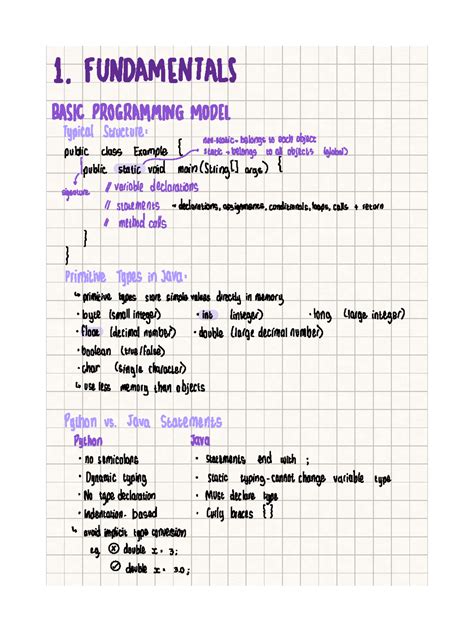 1. FUNDAMENTALS
BASIC PROGRAMMING MODEL
Typical Structure:
non-static - belongs to each object
public class Example {
static - belongs to all objects (global)
public static void main(String[] args) {
signature
// variable declarations
// statements - declarations, assignments, conditionals, loops, calls + return
// method calls
}
}
Primitive Types in Java:
↳ primitive types store simple values directly in memory
• byte (small integer) • int (integer) • long (large integer)
• float (decimal number) • double (large decimal number)
• boolean (true/false)
• char (single character)
↳ use less memory than objects
Python vs. Java Statements
Python Java
• no semicolons • statements end with ;
• Dynamic typing • static typing - cannot change variable type
• No type declaration • Must declare type
• Indentation-based • Curly braces { }
↳ avoid implicit type conversion
eg. ⊗ double x = 3;
double x = 3.0;